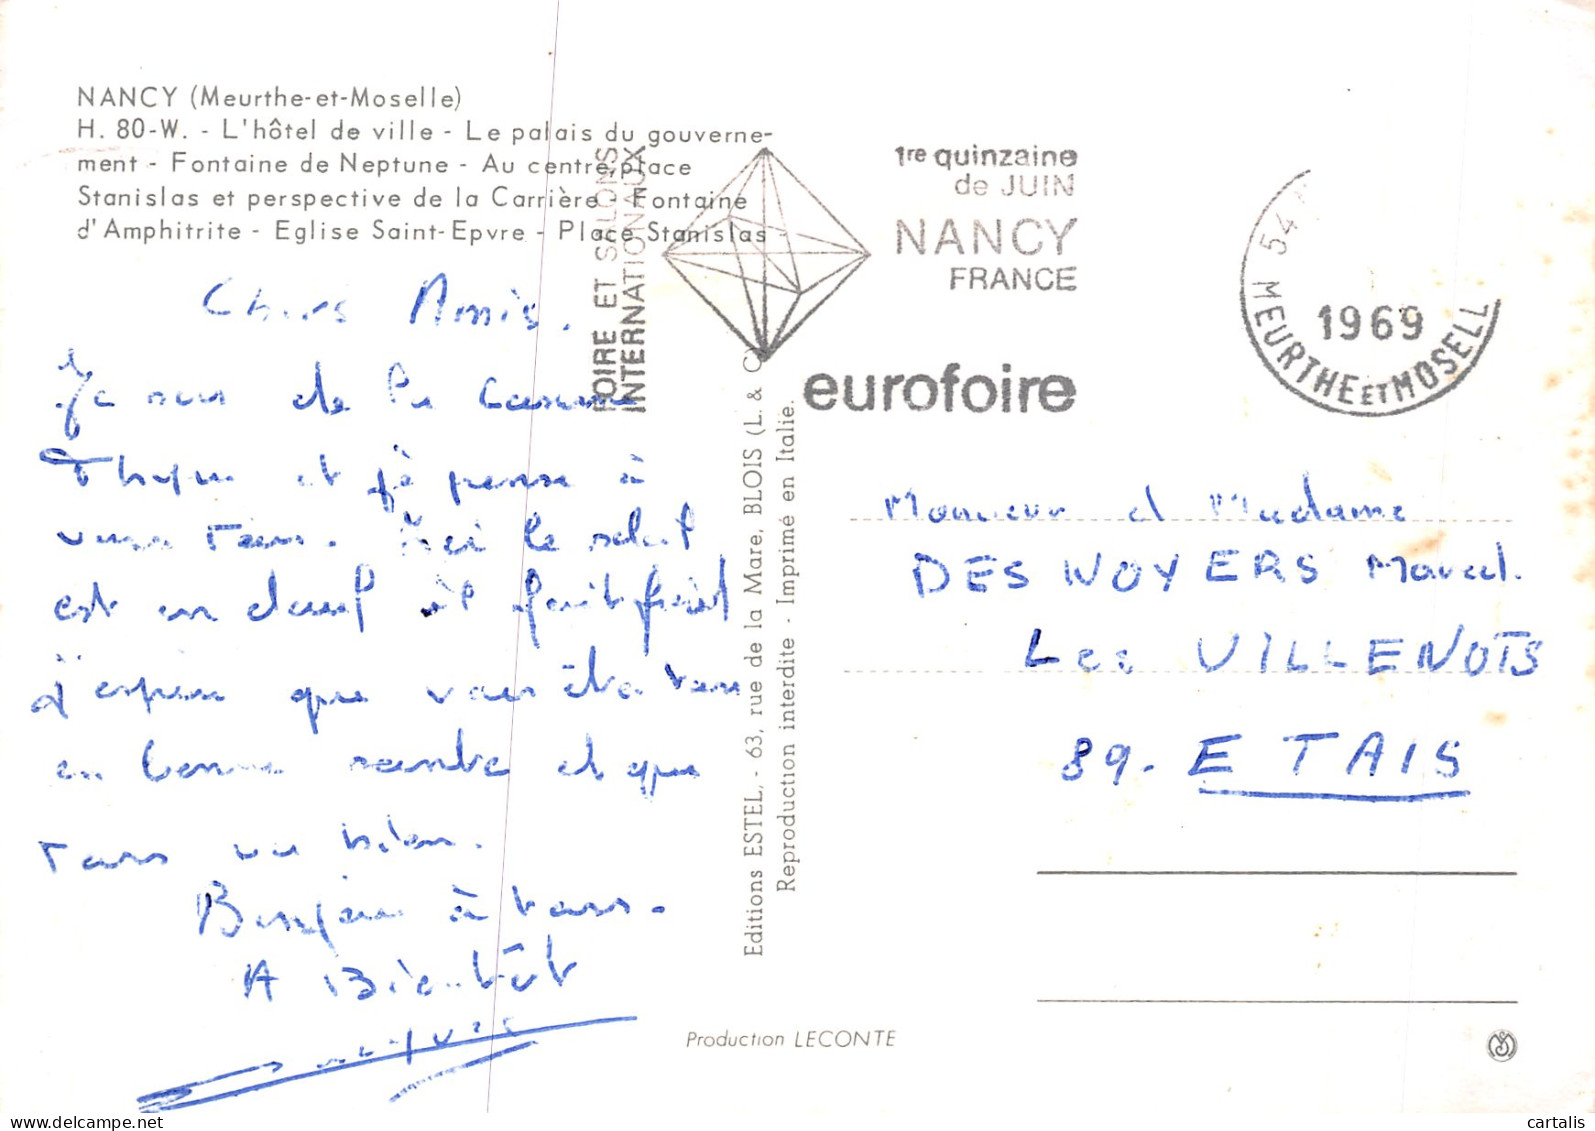 NANCY (Meurthe-et-Moselle)
H. 80-W. - L'hôtel de ville - Le palais du gouverne-
ment - Fontaine de Neptune - Au centre, place
Stanislas et perspective de la Carrière - Fontaine
d'Amphitrite - Eglise Saint-Epvre - Place Stanislas
FOIRE ET SALONS
INTERNATIONAUX
1re quinzaine
de JUIN
NANCY
FRANCE
eurofoire
54
1969
MEURTHE ET MOSELL
Chers Amis.
de la
et je pense à
vous Tous. Ici le soleil
est en deuil il fait froid
J'espère que vous êtes tous
en bonne santée et que
Tous va bien.
Bonjour à tous.
A Bientôt
Jacques
Editions ESTEL, - 63, rue de la Mare, BLOIS (L. & C
Reproduction interdite - Imprimé en Italie.
Monsieur et Madame
DESNOYERS Marcel.
Les VILLENOTS
89. ETAIS
Production LECONTE
delcampe.net
cartalis